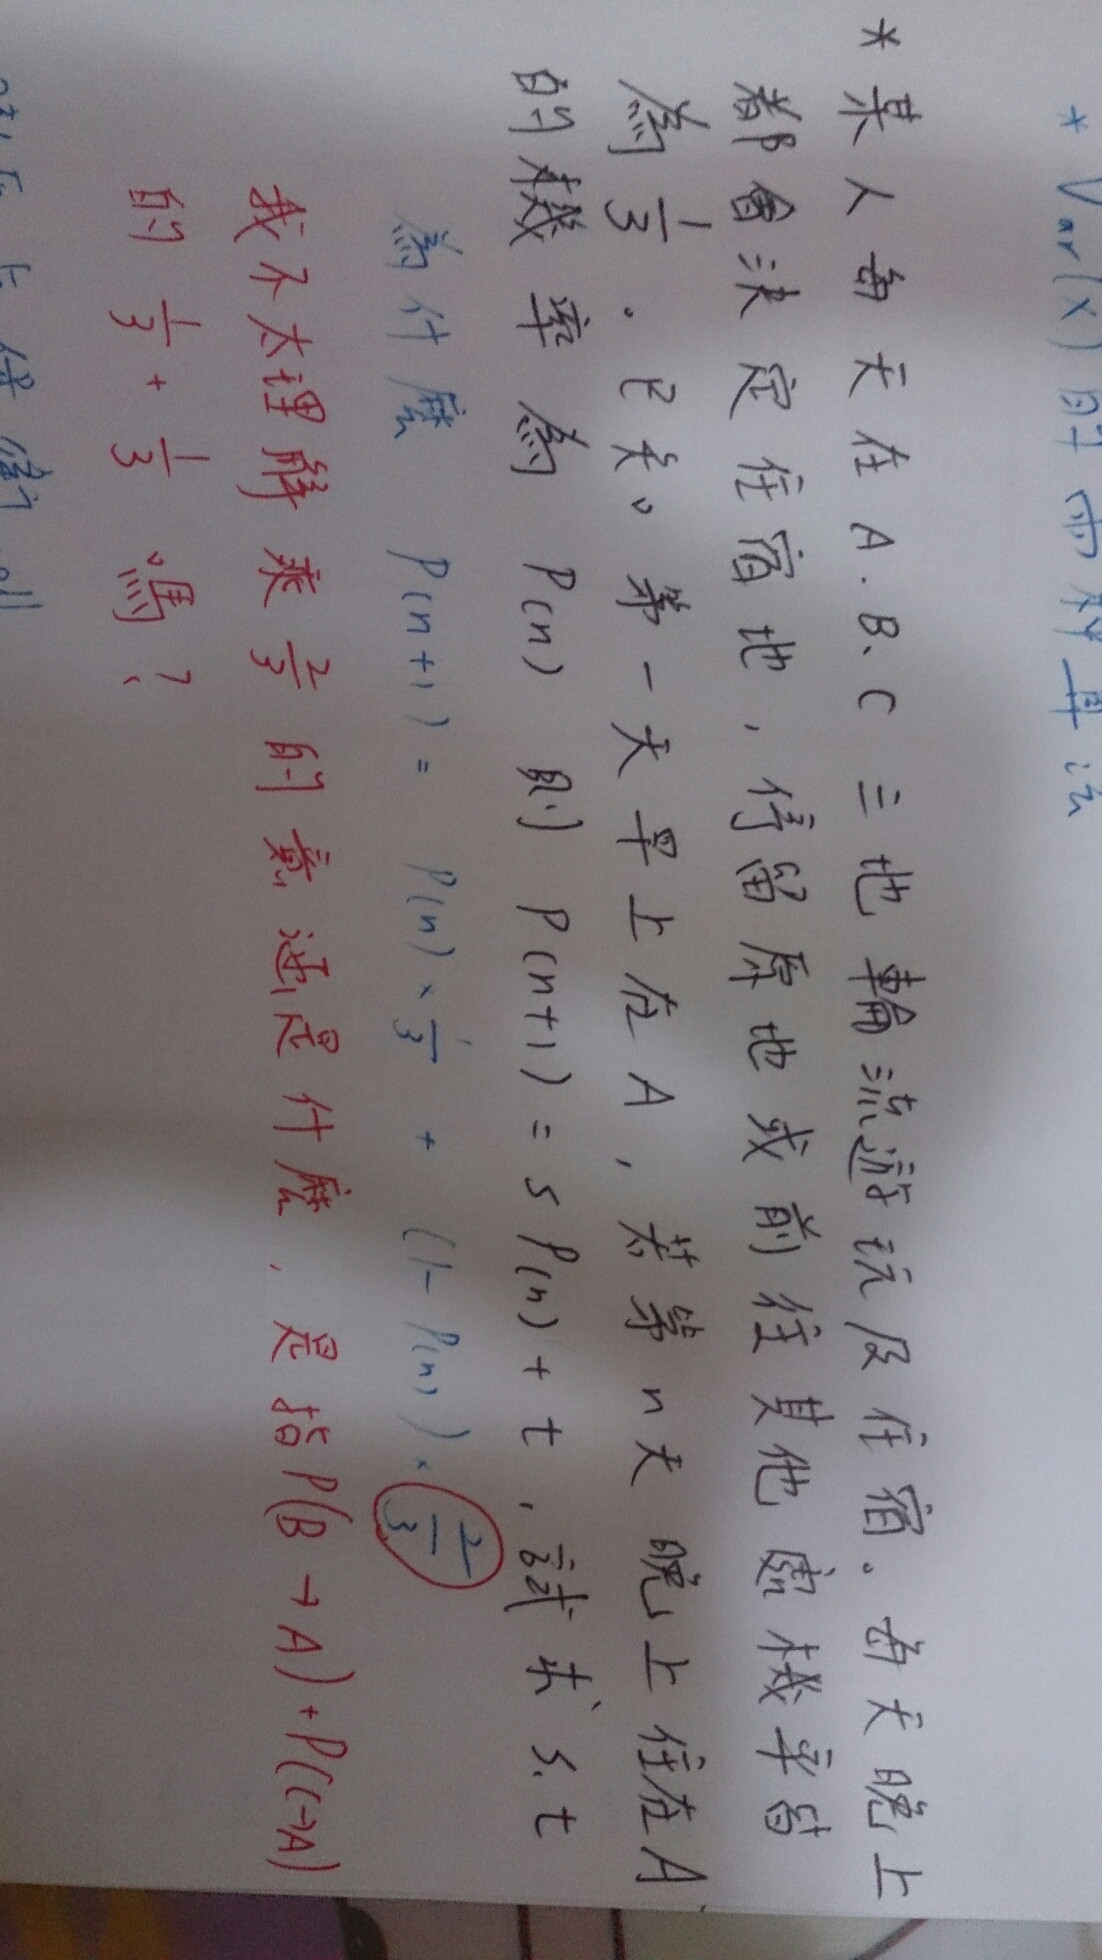 * Var(X) 的兩種算法
* 某人每天在 A、B、C 三地輪流遊玩及住宿。每天晚上
都會決定住宿地,停留原地或前往其他處機率皆
為 1/3。已知第一天早上在 A,若第 n 天晚上住在 A
的機率為 P(n) 則 P(n+1) = s P(n) + t,試求 s、t
為什麼 P(n+1) = P(n) × 1/3 + (1 - P(n)) × 2/3
我不太理解乘 2/3 的意涵是什麼,是指 P(B→A)+P(C→A)
的 1/3 + 1/3 嗎?